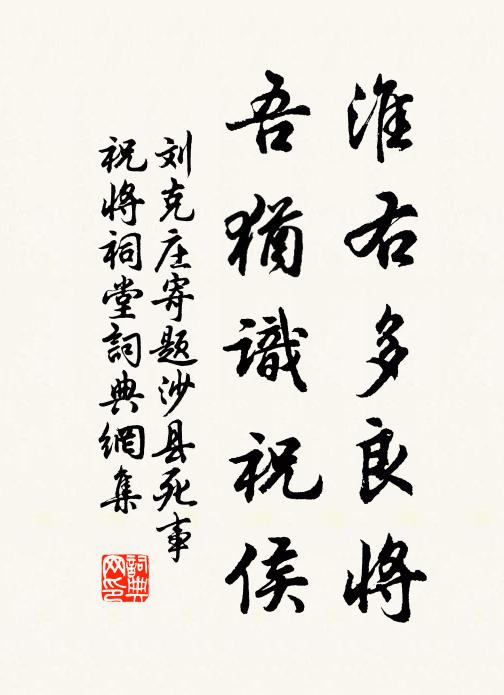 淮右多良将
吾猶識祝侯
刘克庄寄题沙县死事
祝将祠堂詞典網集
詞典
网印